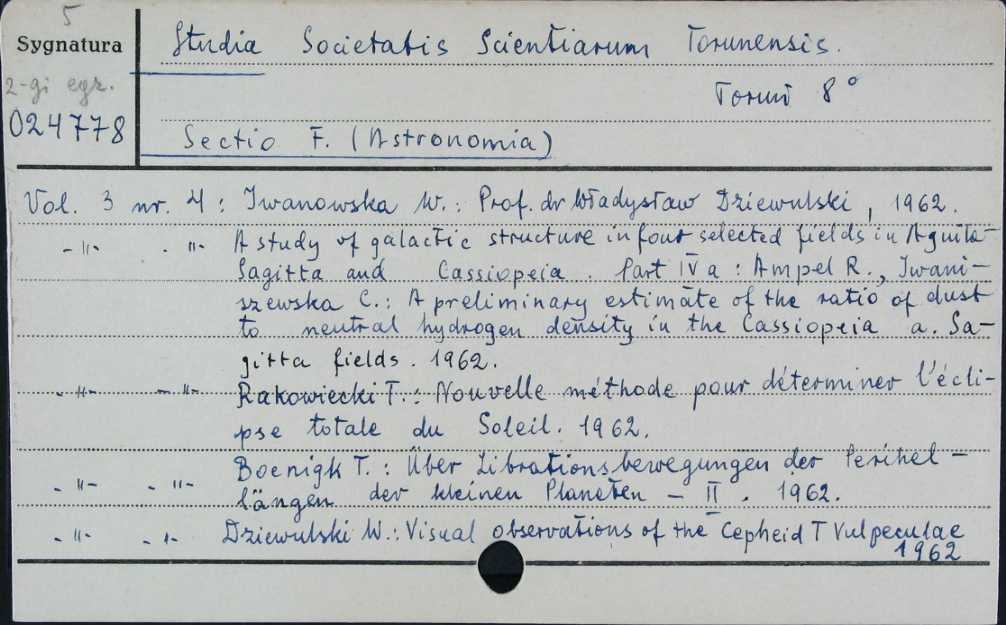 5
Sygnatura
2-gi egz.
024778
Studia Societatis Scientiarum Torunensis.
Toruń 8°
Sectio F. (Astronomia)
Vol. 3 nr. 4: Iwanowska W.: Prof. dr Władysław Dziewulski, 1962.
-"- . -"- A study of galactic structure in four selected fields in Aquila
Sagitta and Cassiopeia. Part IVa: Ampel R., Iwani-
szewska C.: A preliminary estimate of the ratio of dust
to neutral hydrogen density in the Cassiopeia a. Sa-
gitta fields. 1962.
-"- -"- Rakowiecki T.: Nouvelle méthode pour déterminer l'écli-
pse totale du Soleil. 1962.
-"- -"- Boenigk T.: Über Librationsbewegungen der Perihel-
längen der kleinen Planeten - II. 1962.
-"- -"- Dziewulski W.: Visual observations of the Cepheid T Vulpeculae
1962